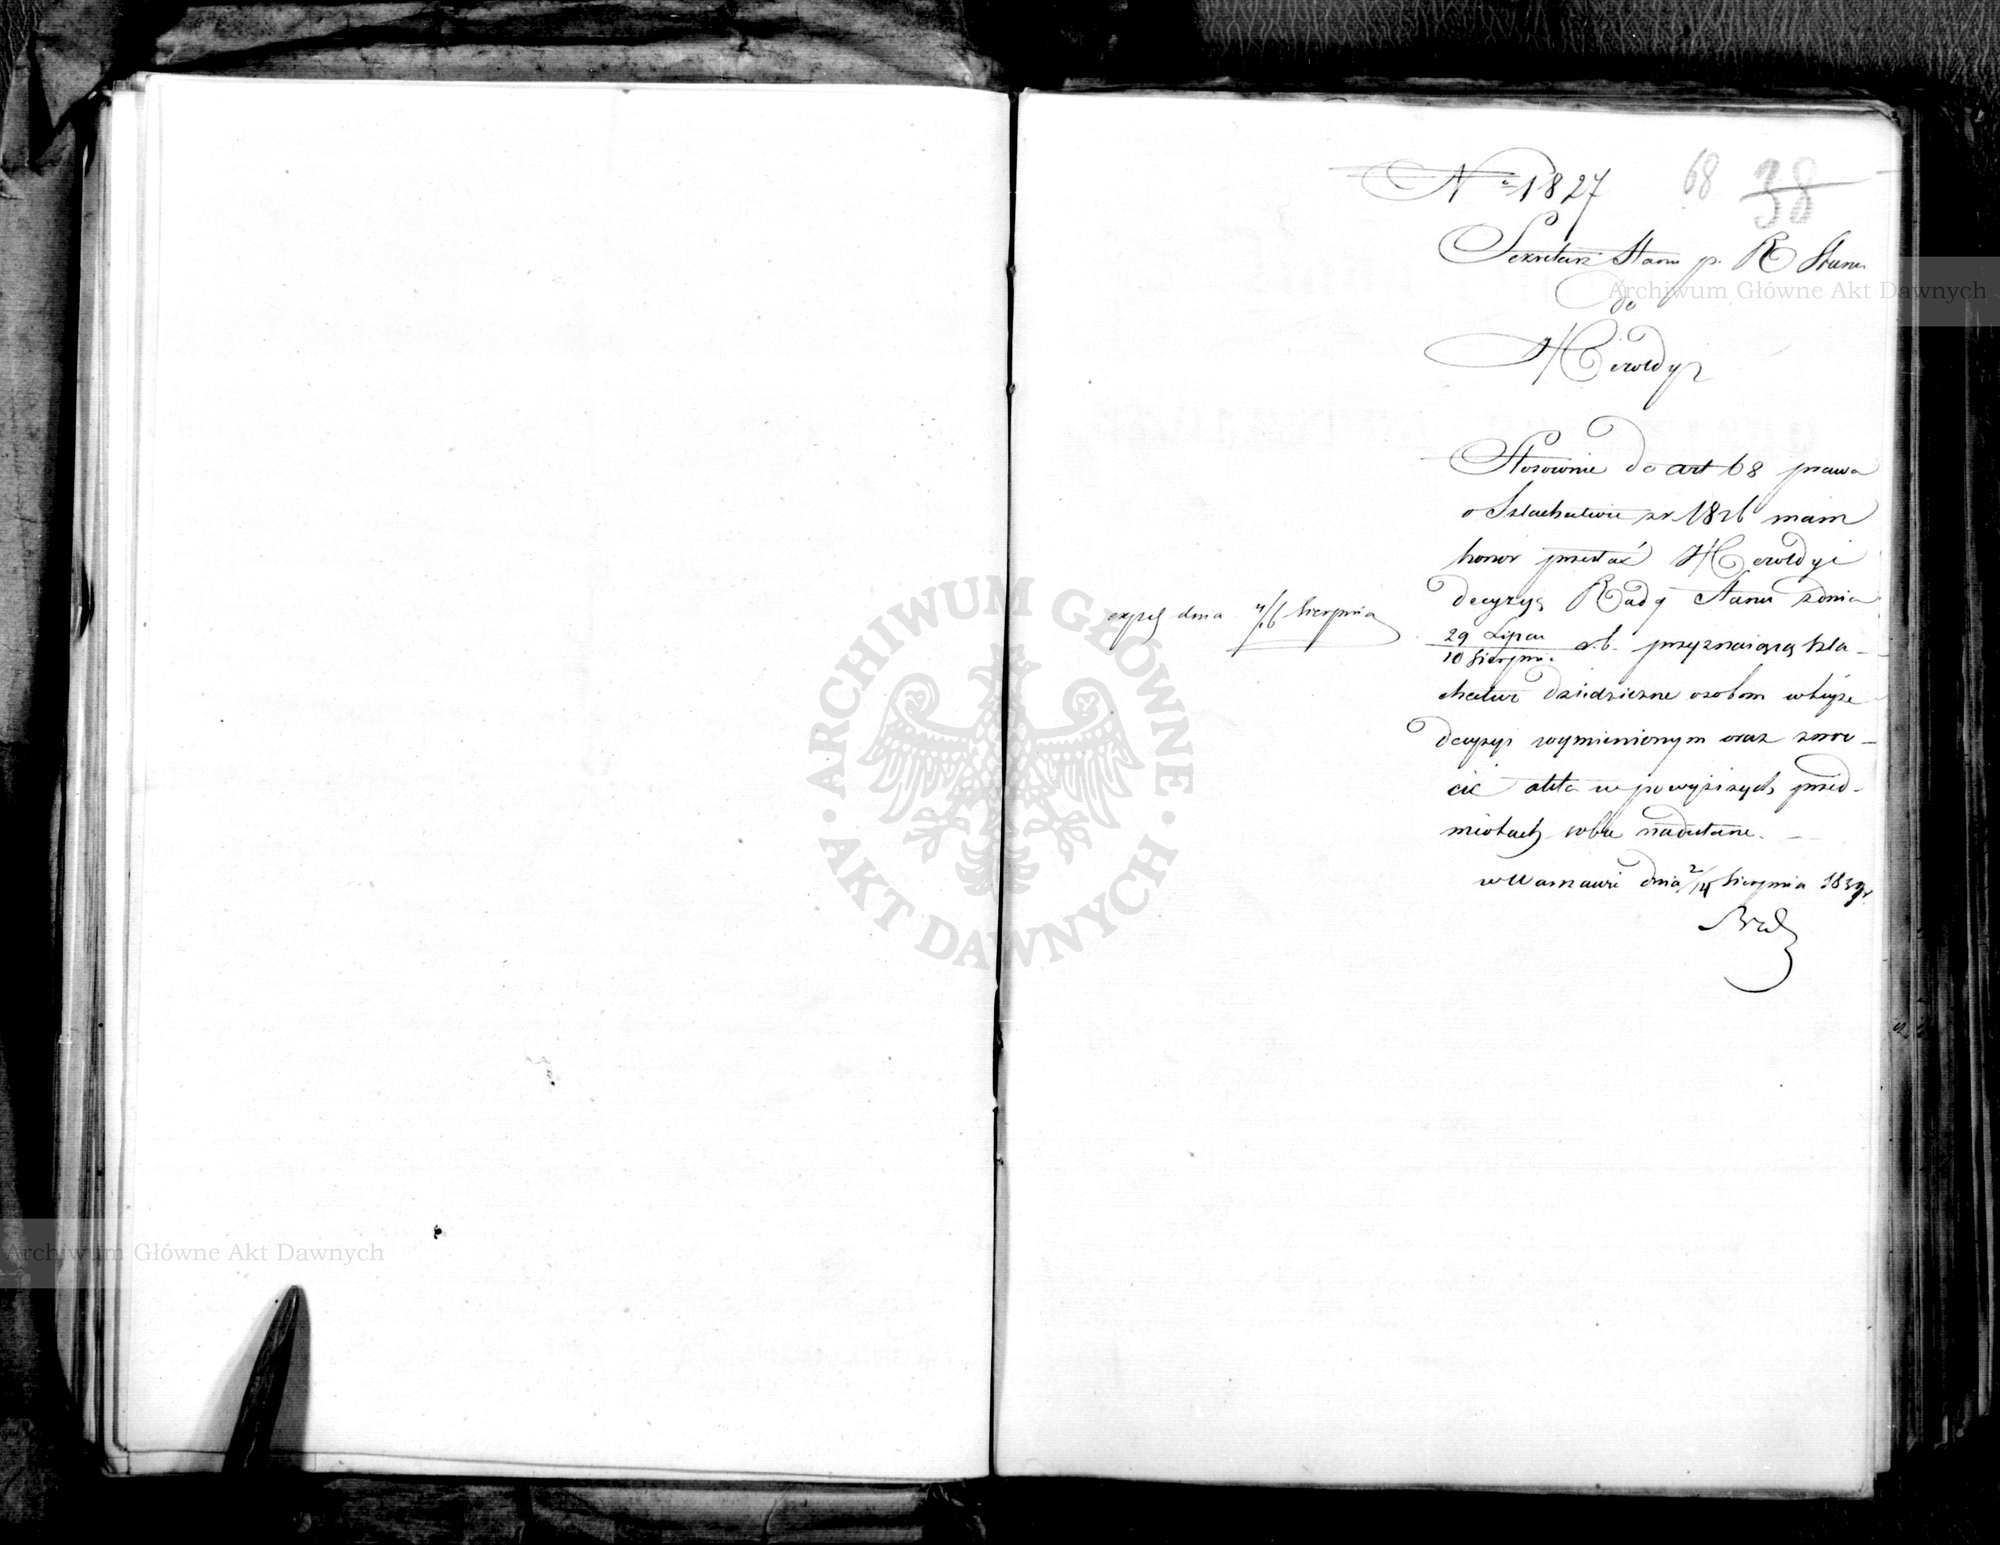 No 1827
68 38
Sekretarz Stanu p. R Stanu
do
Heroldyi
Stosownie do art 68 prawa
o Szlachectwie zr 1826 mam
honor przesłać Heroldyi
decyzyą Rady Stanu zdnia
29 Lipca
10 Sierpni. r.b. przyznaiącą szla-
chectwo dziedziczne osobom wtejże
decyzyi wymienionym oraz zwró-
cić akta w powyższych przed-
miotach sobie nadesłane.
w Warszawie dnia 2/14 Sierpnia 1839 r.
exped dnia 4/16 Sierpnia
Archiwum Główne Akt Dawnych
ARCHIWUM GŁÓWNE
AKT DAWNYCH
Archiwum Główne Akt Dawnych